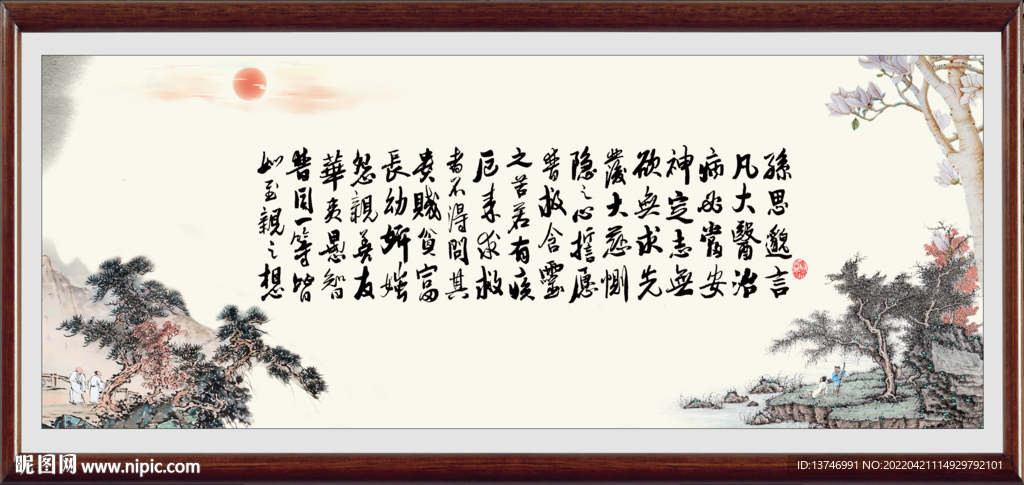 孫思邈言
凡大醫治
病必當安
神定志無
欲無求先
發大慈惻
隐之心誓愿
普救含靈
之苦若有疾
厄来求救
者不得問其
貴賤貧富
長幼妍媸
怨親善友
華夷愚智
普同一等皆
如至親之想
昵图网 www.nipic.com
ID:13746991 NO:20220421114929792101